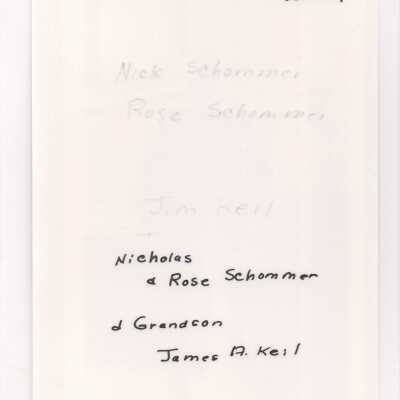 Nick Schommer
Rose Schommer
Jim Keil
Nicholas
& Rose Schommer
& Grandson
James A. Keil